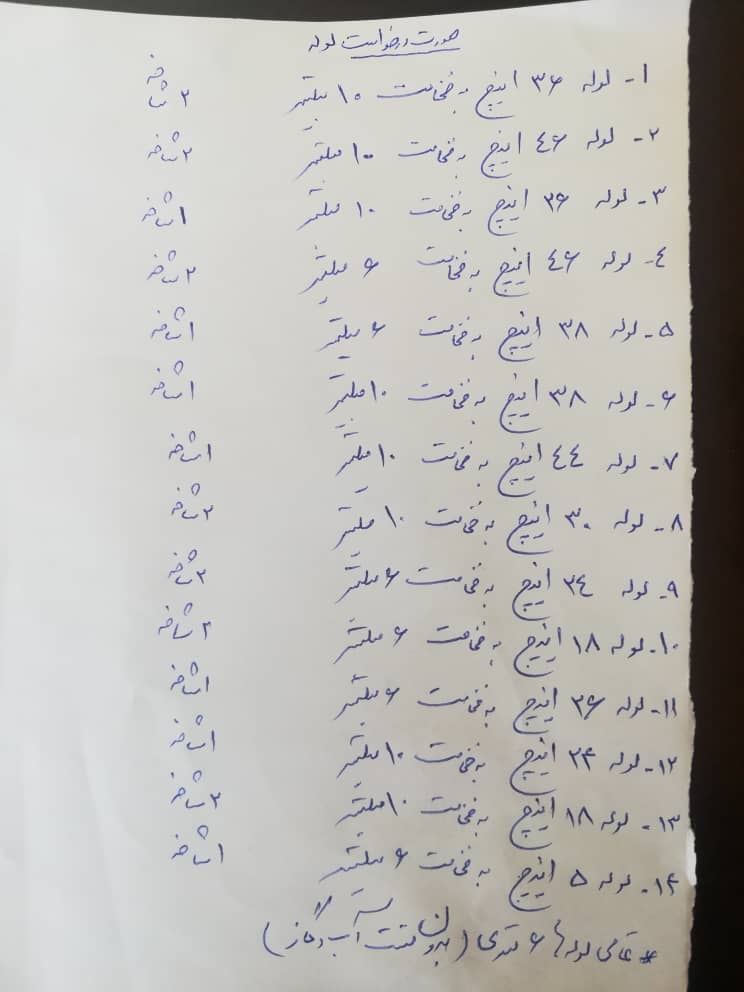 صورت درخواست لوله
۱- لوله ۳۶ اینچ به ضخامت ۱۰ میلیمتر ۲ شاخه
۲- لوله ٤۶ اینچ به ضخامت ۱۰ میلیمتر ۲ شاخه
۳- لوله ۳۶ اینچ به ضخامت ۱۰ میلیمتر ۱ شاخه
٤- لوله ٤۶ اینچ به ضخامت ۶ میلیمتر ۲ شاخه
۵- لوله ۳۸ اینچ به ضخامت ۶ میلیمتر ۱ شاخه
۶- لوله ۳۸ اینچ به ضخامت ۱۰ میلیمتر ۱ شاخه
۷- لوله ٤٤ اینچ به ضخامت ۱۰ میلیمتر ۱ شاخه
۸- لوله ۳۰ اینچ به ضخامت ۱۰ میلیمتر ۲ شاخه
۹- لوله ۳٤ اینچ به ضخامت ۶ میلیمتر ۲ شاخه
۱۰- لوله ۱۸ اینچ به ضخامت ۶ میلیمتر ۲ شاخه
۱۱- لوله ۳۶ اینچ به ضخامت ۶ میلیمتر ۱ شاخه
۱۲- لوله ۳۴ اینچ به ضخامت ۱۰ میلیمتر ۱ شاخه
۱۳- لوله ۱۸ اینچ به ضخامت ۱۰ میلیمتر ۲ شاخه
۱۴- لوله ۵ اینچ به ضخامت ۶ میلیمتر ۱ شاخه
* تمامی لوله ها ۶ متری (بدون تست آب و گاز)